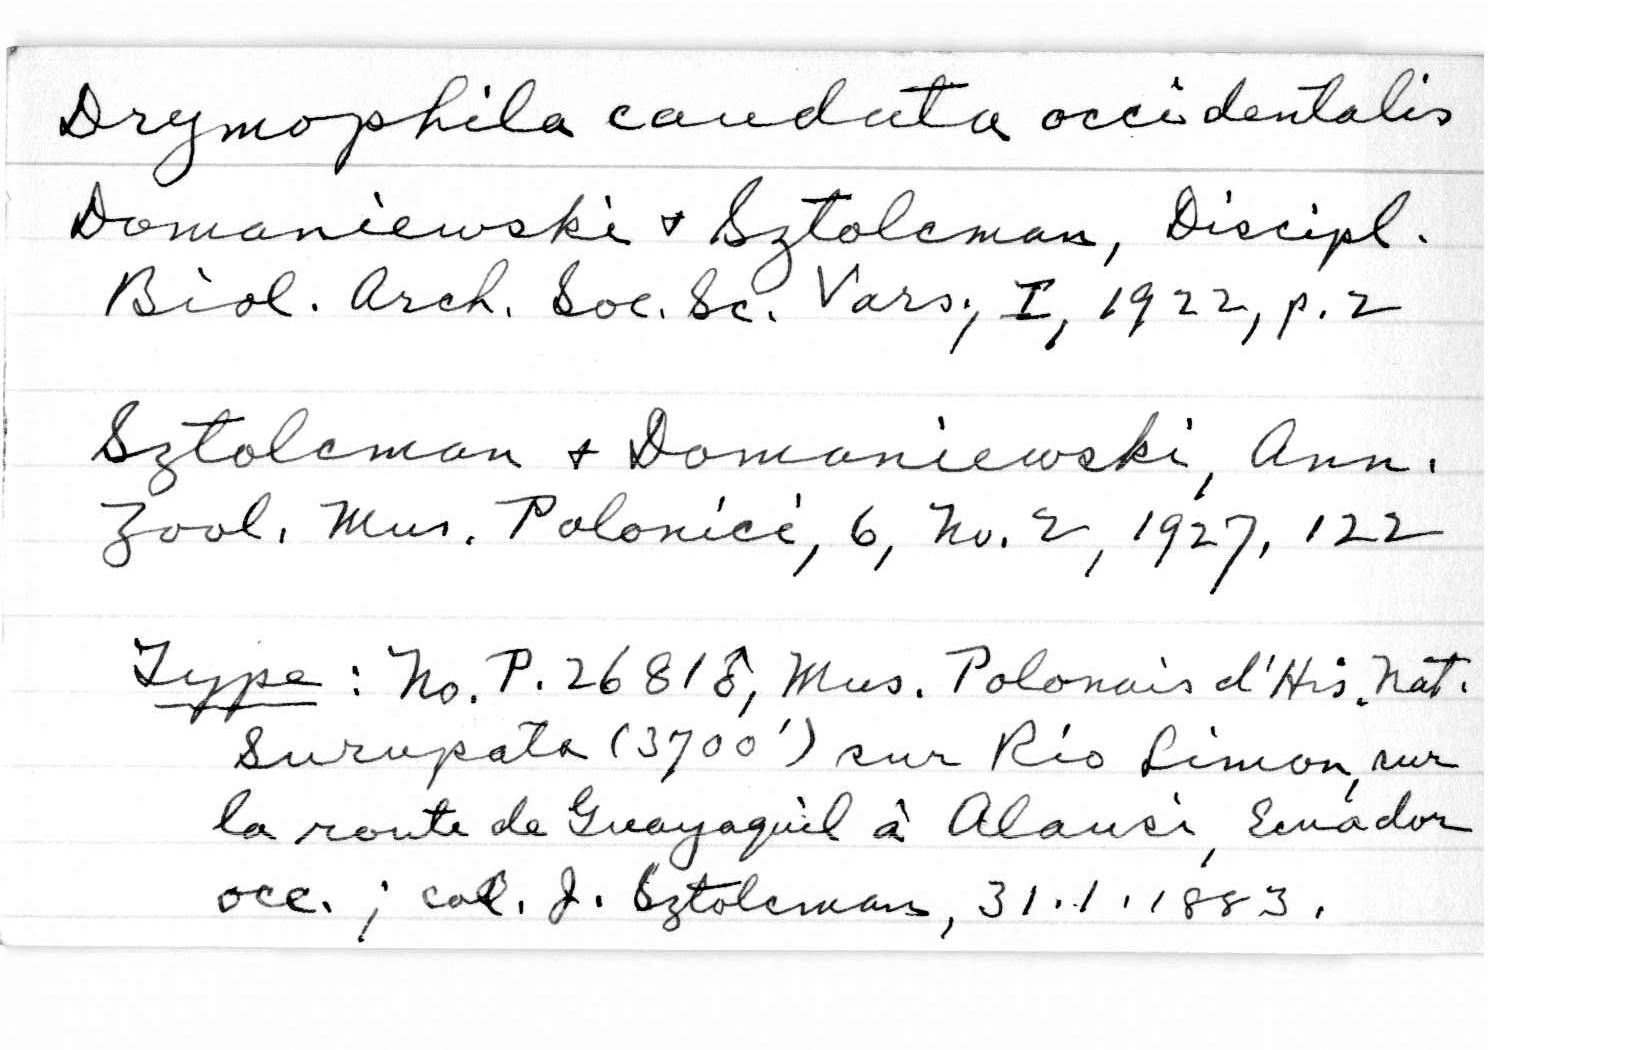 Drymophila caudata occidentalis
Domaniewski & Sztolcman, Discipl.
Biol. Arch. Soc. Sc. Vars., I, 1922, p. 2
Sztolcman & Domaniewski, Ann.
Zool. Mus. Polonici, 6, No. 2, 1927, 122
Type: No. P. 2681♂, Mus. Polonais d'His. Nat.
Surupata (3700') sur Río Limon, sur
la route de Guayaquil à Alausi, Ecuador
occ.; col. J. Sztolcman, 31.1.1883.